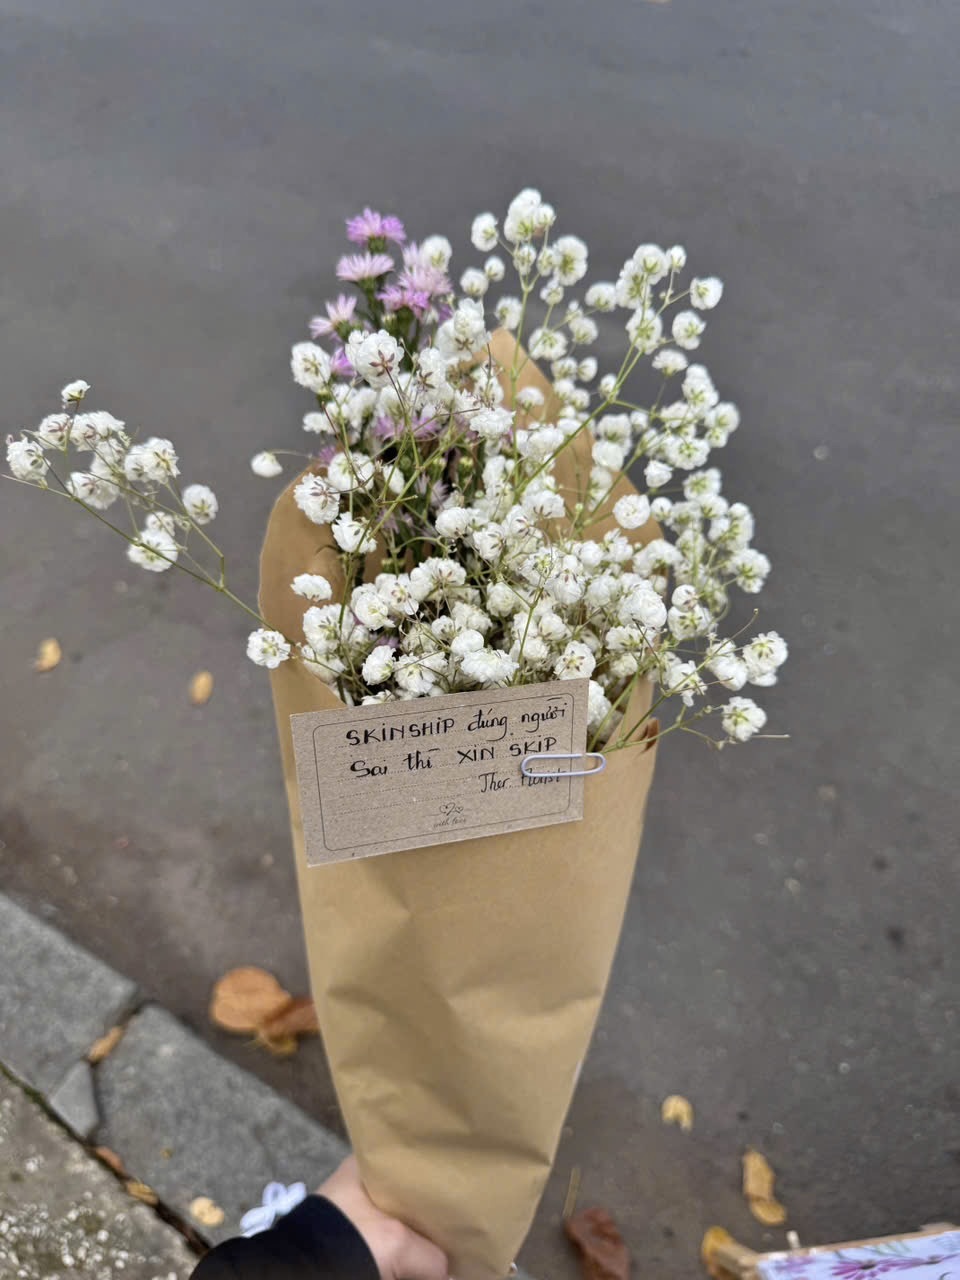 SKINSHIP đúng người
Sai thì XIN SKIP
Ther. Florist
with love